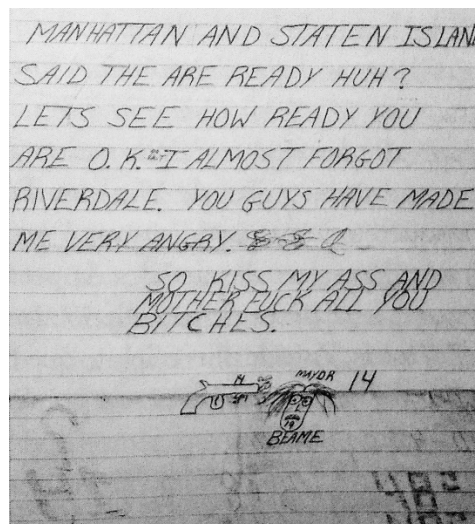 MANHATTAN AND STATEN ISLAN
SAID THE ARE READY HUH?
LETS SEE HOW READY YOU
ARE O.K. I ALMOST FORGOT
RIVERDALE. YOU GUYS HAVE MADE
ME VERY ANGRY.
SO KISS MY ASS AND
MOTHER FUCK ALL YOU
BITCHES.
MAYOR 14
14
BEAME